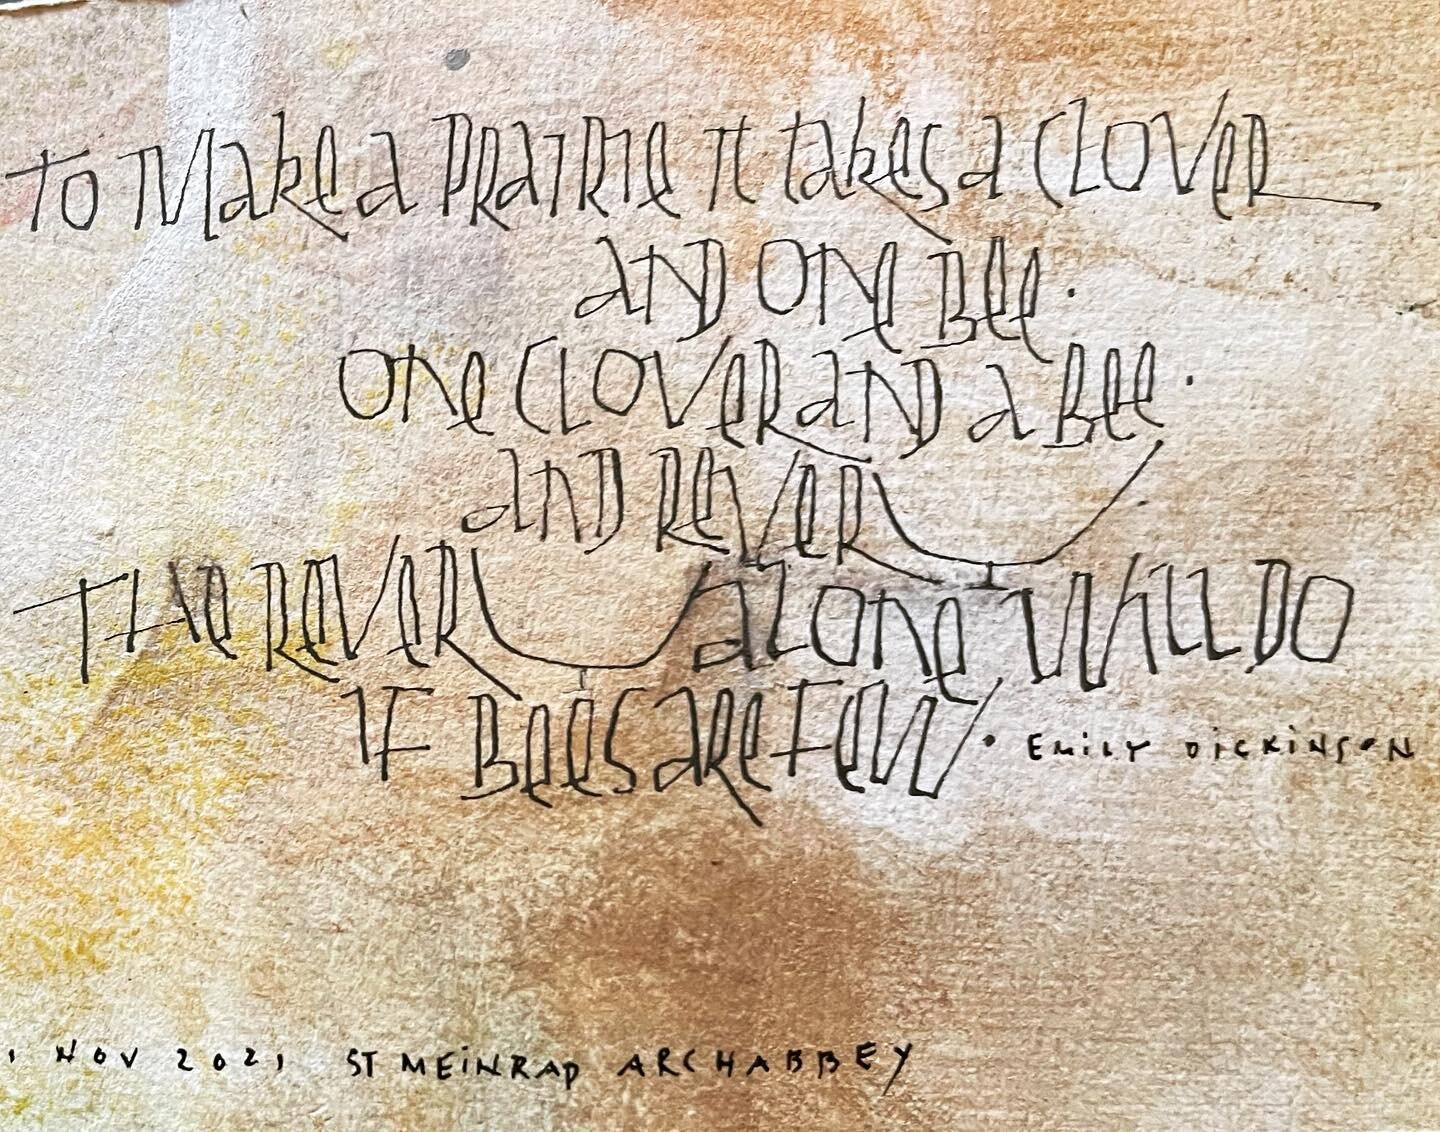 TO MAKE A PRAIRIE IT TAKES A CLOVER
AND ONE BEE.
ONE CLOVER AND A BEE.
AND REVERY
THE REVERY ALONE WILL DO
IF BEES ARE FEW. EMILY DICKINSON
1 NOV 2021 ST MEINRAD ARCHABBEY